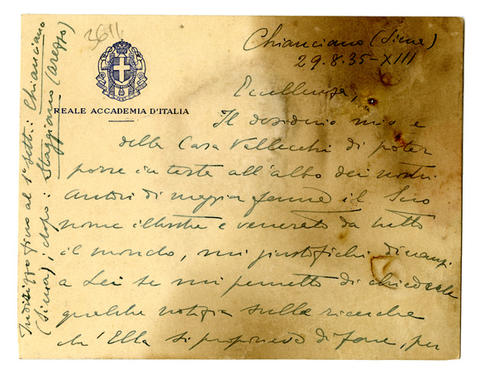 3611
REALE ACCADEMIA D'ITALIA
Chianciano (Siena)
29.8.35-XIII
Eccellenza,
Il desiderio mio e
della Casa Vallecchi di poter
porre in testa all'albo dei nostri
autori di il Suo
nome illustre e venerato da tutto
il mondo, mi giustifichi dinanzi
a Lei se mi permetto di chiederle
qualche notizia sulle ricerche
ch'Ella si proponeva di fare, per
Indirizzo fino al 1° sett.: Chianciano
(Siena); dopo: Staggiano (Arezzo)